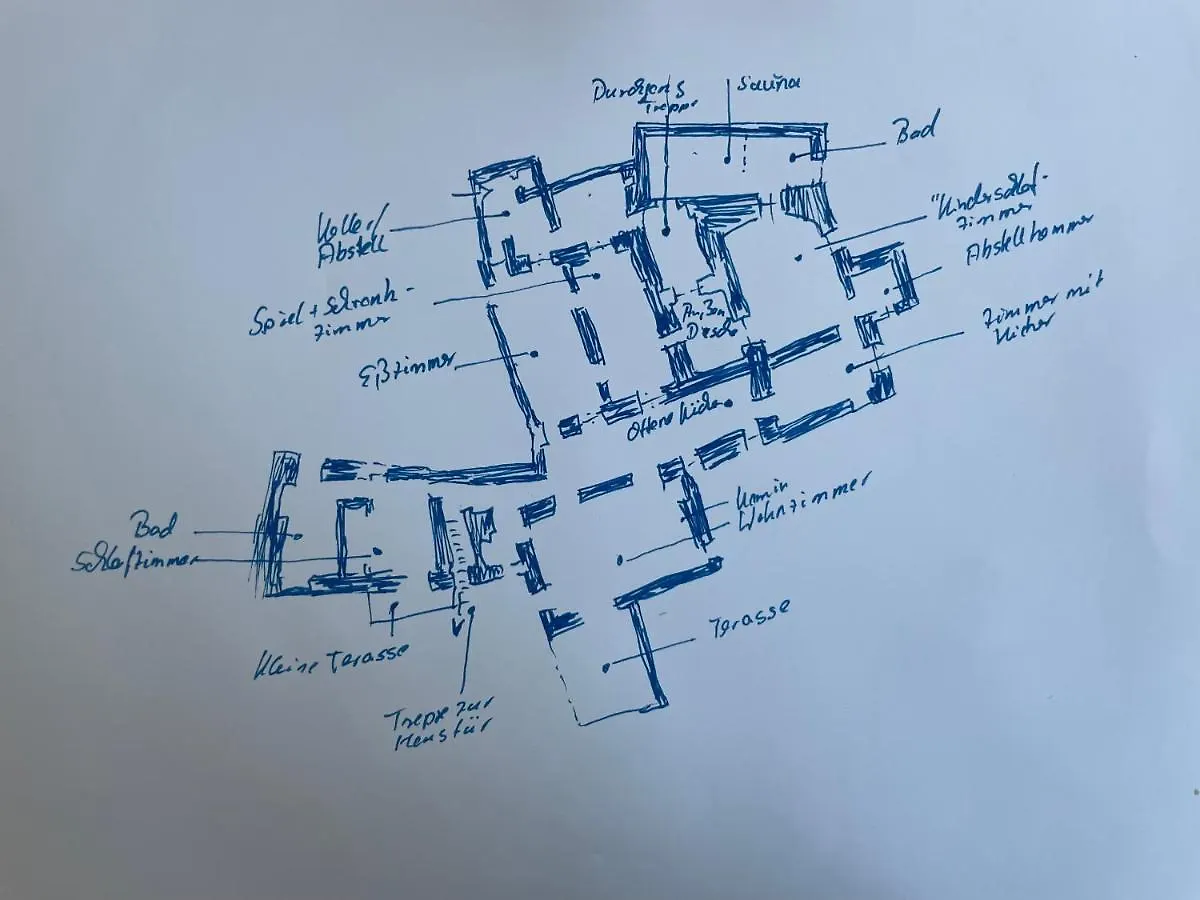 Sauna
Treppe
Bad
Keller/
Abstell
zimmer
Abstellkammer
Spiel + Schrank-
zimmer
Zimmer mit
Eßzimmer
Offene Küche
Kamin
Wohnzimmer
Bad
Schlafzimmer
Terasse
Kleine Terasse
Treppe zur
Haustür